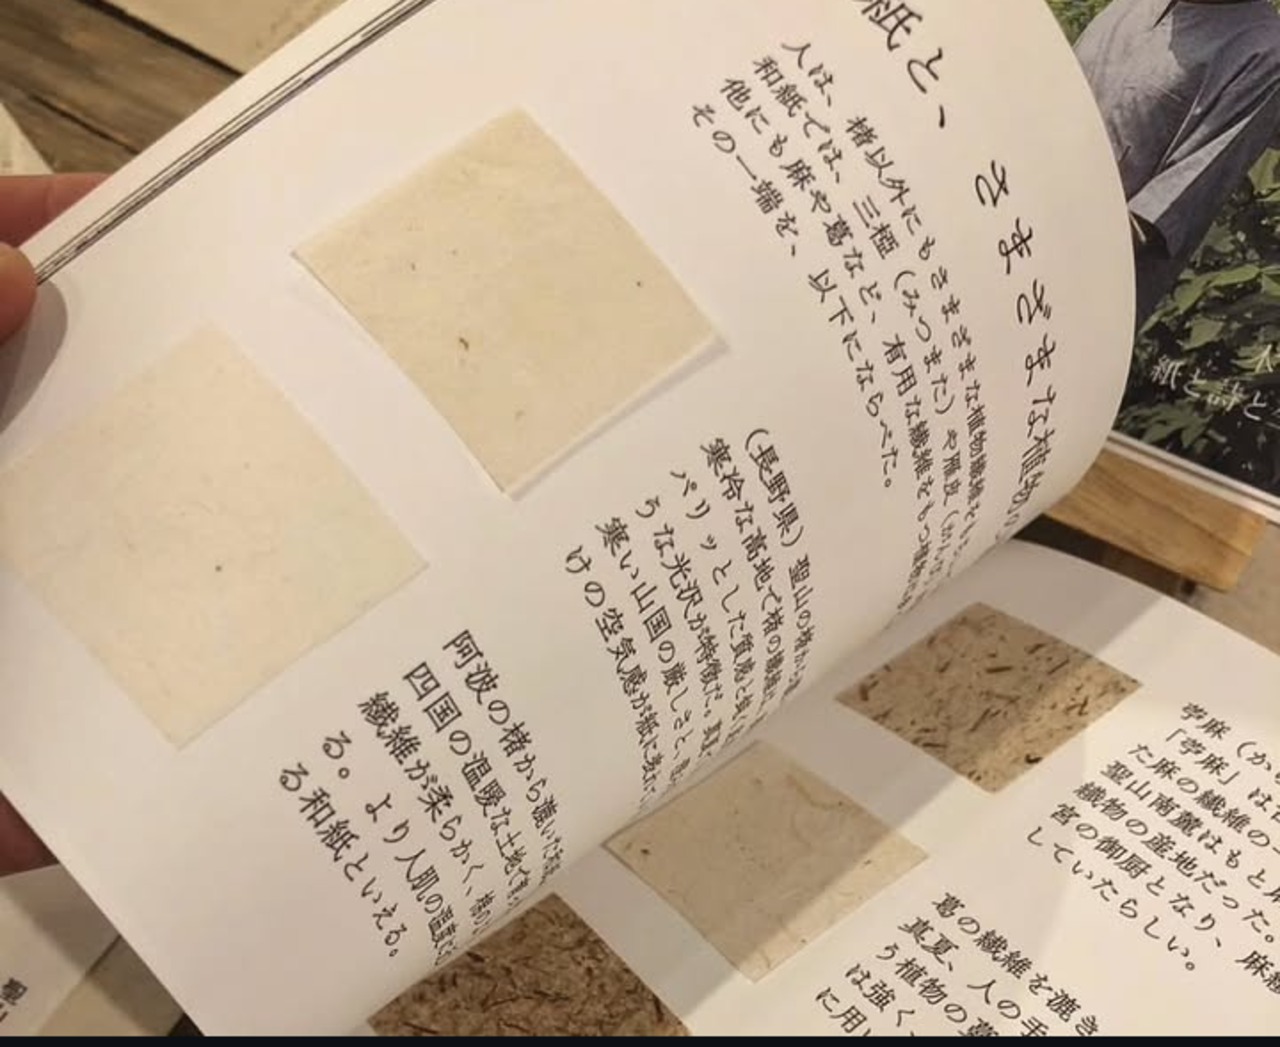 紙と、さまざまな植物
人は、楮以外にもさまざまな植物繊維を
和紙では、三椏（みつまた）や雁皮（がんぴ
他にも麻や葛など、有用な繊維をもつ植物
その一端を、以下にならべた。
（長野県）聖山の楮から
寒冷な高地で楮の繊維
パリッとした質感と
うな光沢が特徴だ。
寒い山国の厳しさと、
けの空気感が紙に
阿波の楮から漉いた
四国の温暖な土地で
繊維が柔らかく、
る。より人肌の温度
る和紙といえる。
苧麻（か
「苧麻」は
た麻の繊維の
聖山南麓はもと
織物の産地だった。
宮の御厨となり、麻
していたらしい。
葛の繊維を漉き
真夏、人の手
う植物の
は強く、
に用い
紙と詩と
聖